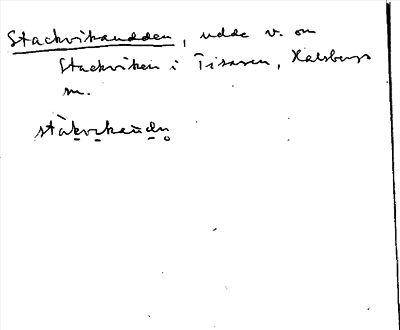 Stackvikaudden, udde v. om
Stackviken i Tisaren, Halsbergs
sn.
stàkvikaùdn̥